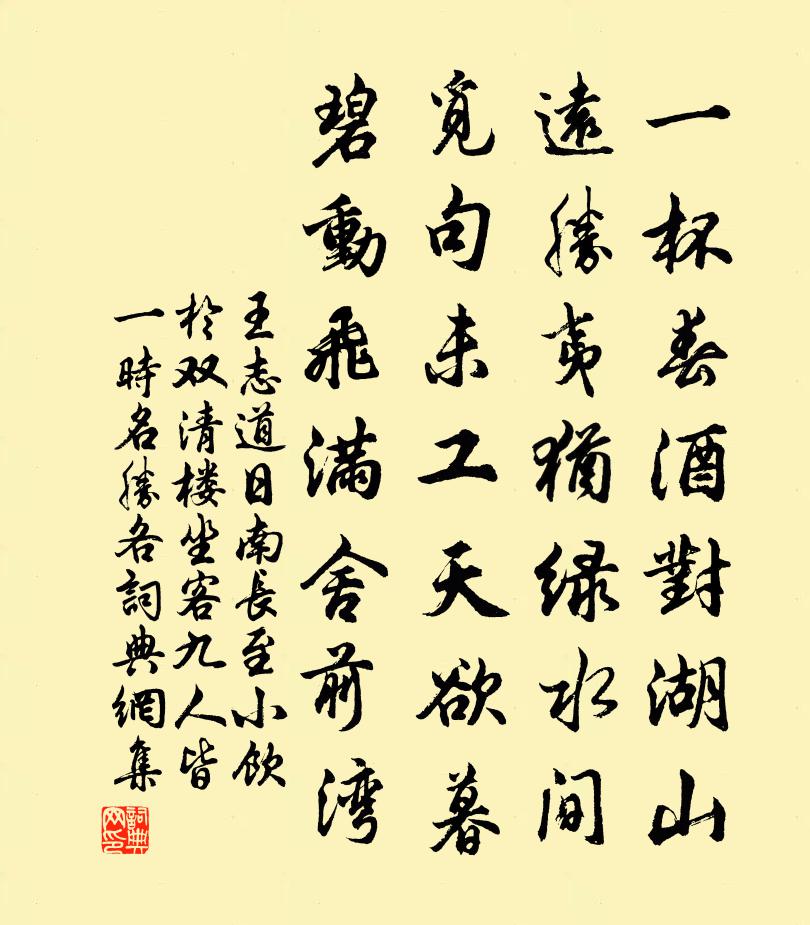 一杯春酒對湖山
遠勝夷猶绿水间
覓句未工天欲暮
碧動飛满舍前湾
王志道日南長至小飲
於双清楼坐客九人皆
一時名勝各詞典網集
詞典
网印